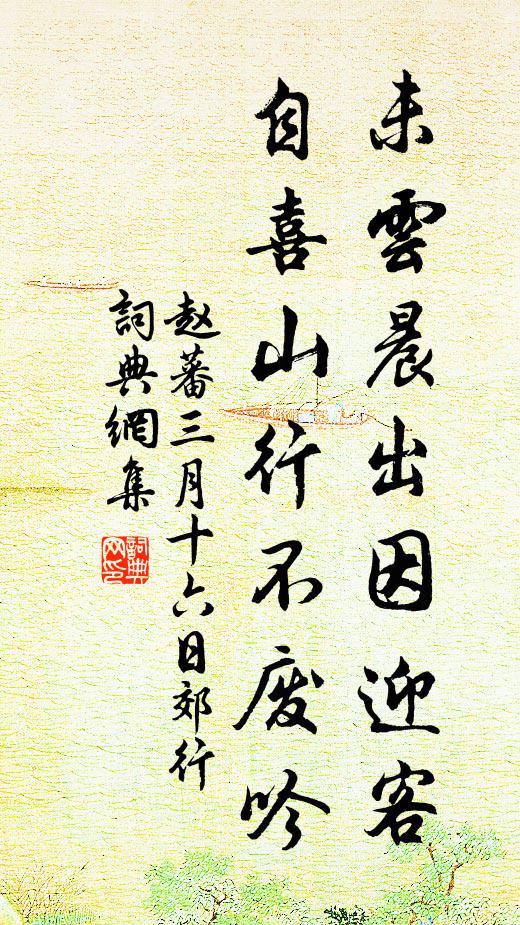 未雲晨出因迎客
自喜山行不废吟
赵蕃三月十六日郊行
詞典網集
詞典网印